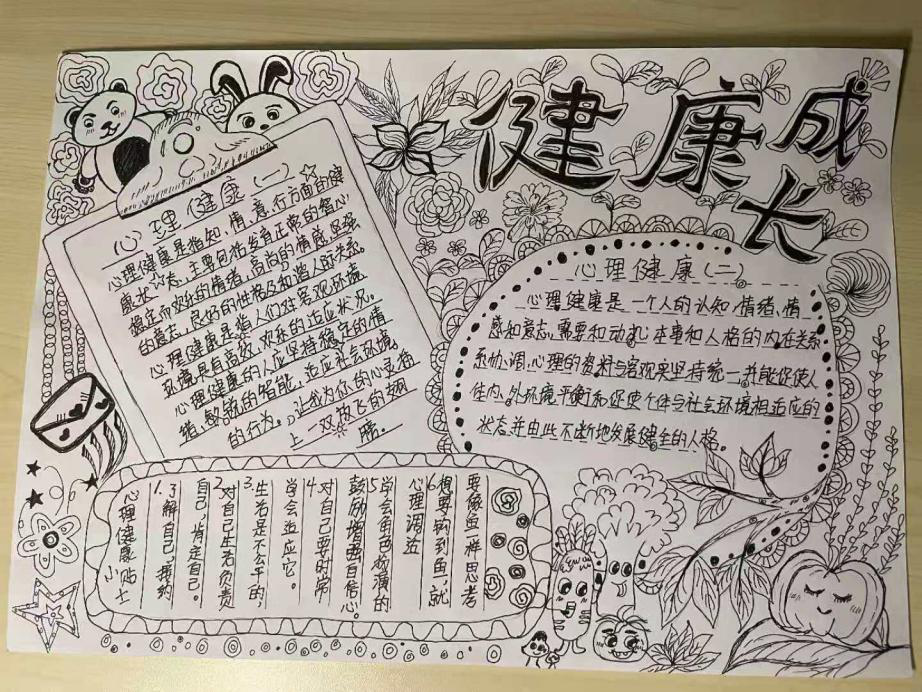 健康成长
心理健康(一)
心理健康是指知、情、意、行方面的健
康状态,主要包括发育正常的智心、
稳定而欢乐的情绪,高尚的情感,坚强
的意志,良好的性格及和谐人际关系。
心理健康是指人们对客观环境
环境具有高效、欢乐的适应状况。
心理健康的人应坚持稳定的情
绪、敏锐的智能,适应社会环境
的行为。让我为你的心灵插
上一双放飞的翅
膀。
心理健康(二)
心理健康是一个人的认知、情绪、情
感和意志,需要和动心、本事和人格的内在关系
系协调,心理的资料与客观实坚持统一,并能促使人
体内、外环境平衡和促使个体与社会环境相适应的
状态,并由此不断地发展健全的人格。
心理健康小贴士
1.了解自己,接纳
自己,肯定自己。
2.对自己生命负责
3.生命是不公平的,
学会适应它。
4.对自己要时常
鼓励增要自信心。
5.学会角色扮演的
心理调适
6.想要钓到鱼,就
要像鱼一样思考